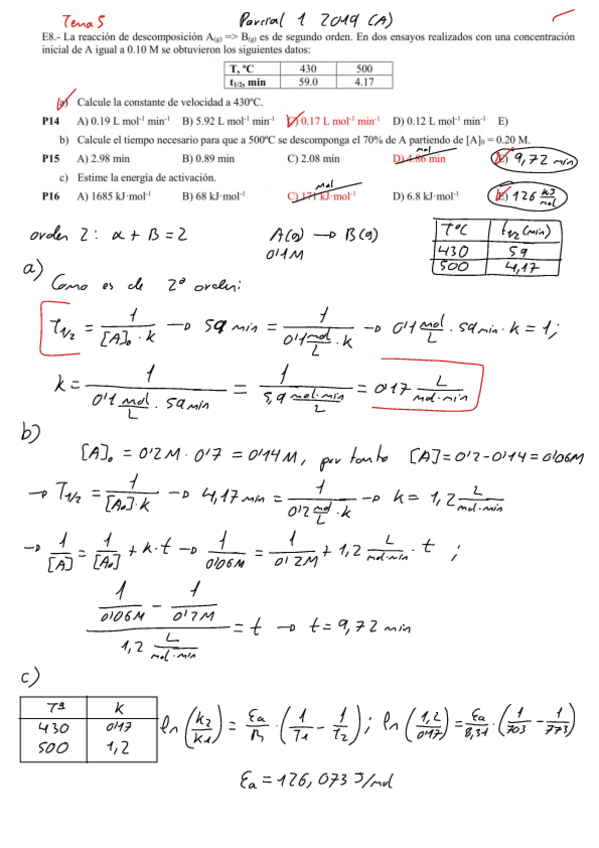 Tema 5
Parcial 1 2019 (A)
E8.- La reacción de descomposición A(g) => B(g) es de segundo orden. En dos ensayos realizados con una concentración
inicial de A igual a 0.10 M se obtuvieron los siguientes datos:
T, ºC 430 500
t1/2, min 59.0 4.17
(a) Calcule la constante de velocidad a 430ºC.
P14 A) 0.19 L mol-1 min-1 B) 5.92 L mol-1 min-1 C) 0.17 L mol-1 min-1 D) 0.12 L mol-1 min-1 E)
b) Calcule el tiempo necesario para que a 500ºC se descomponga el 70% de A partiendo de [A]0 = 0.20 M.
mal
P15 A) 2.98 min B) 0.89 min C) 2.08 min D) 4.86 min E) 9,72 min
c) Estime la energía de activación.
mal
P16 A) 1685 kJ·mol-1 B) 68 kJ·mol-1 C) 171 kJ·mol-1 D) 6.8 kJ·mol-1 E) 126 kJ/mol
orden 2: α + B = 2 A(g) → B(g)
0'1M
TºC t1/2 (min)
430 59
500 4,17
a) Como es de 2º orden:
T1/2 = 1/([A]0 · k) → 59 min = 1/(0'1 mol/L · k) → 0'1 mol/L · 59 min · k = 1;
k = 1/(0'1 mol/L · 59 min) = 1/(5,9 mol·min/L) = 0'17 L/(mol·min)
b)
[A]0 = 0'2M · 0'7 = 0'14M, por tanto [A] = 0'2 - 0'14 = 0'06M
→ T1/2 = 1/([A0]·k) → 4,17 min = 1/(0'2 mol/L · k) → k = 1,2 L/(mol·min)
→ 1/[A] = 1/[A0] + k·t → 1/0'06M = 1/0'2M + 1,2 L/(mol·min) · t ;
(1/0'06M - 1/0'2M)/(1,2 L/(mol·min)) = t → t = 9,72 min
c)
Tª K
430 0'17
500 1,2
ln(k2/k1) = Ea/R · (1/T1 - 1/T2); ln(1,2/0'17) = Ea/8,31 · (1/703 - 1/773)
Ea = 126,073 J/mol